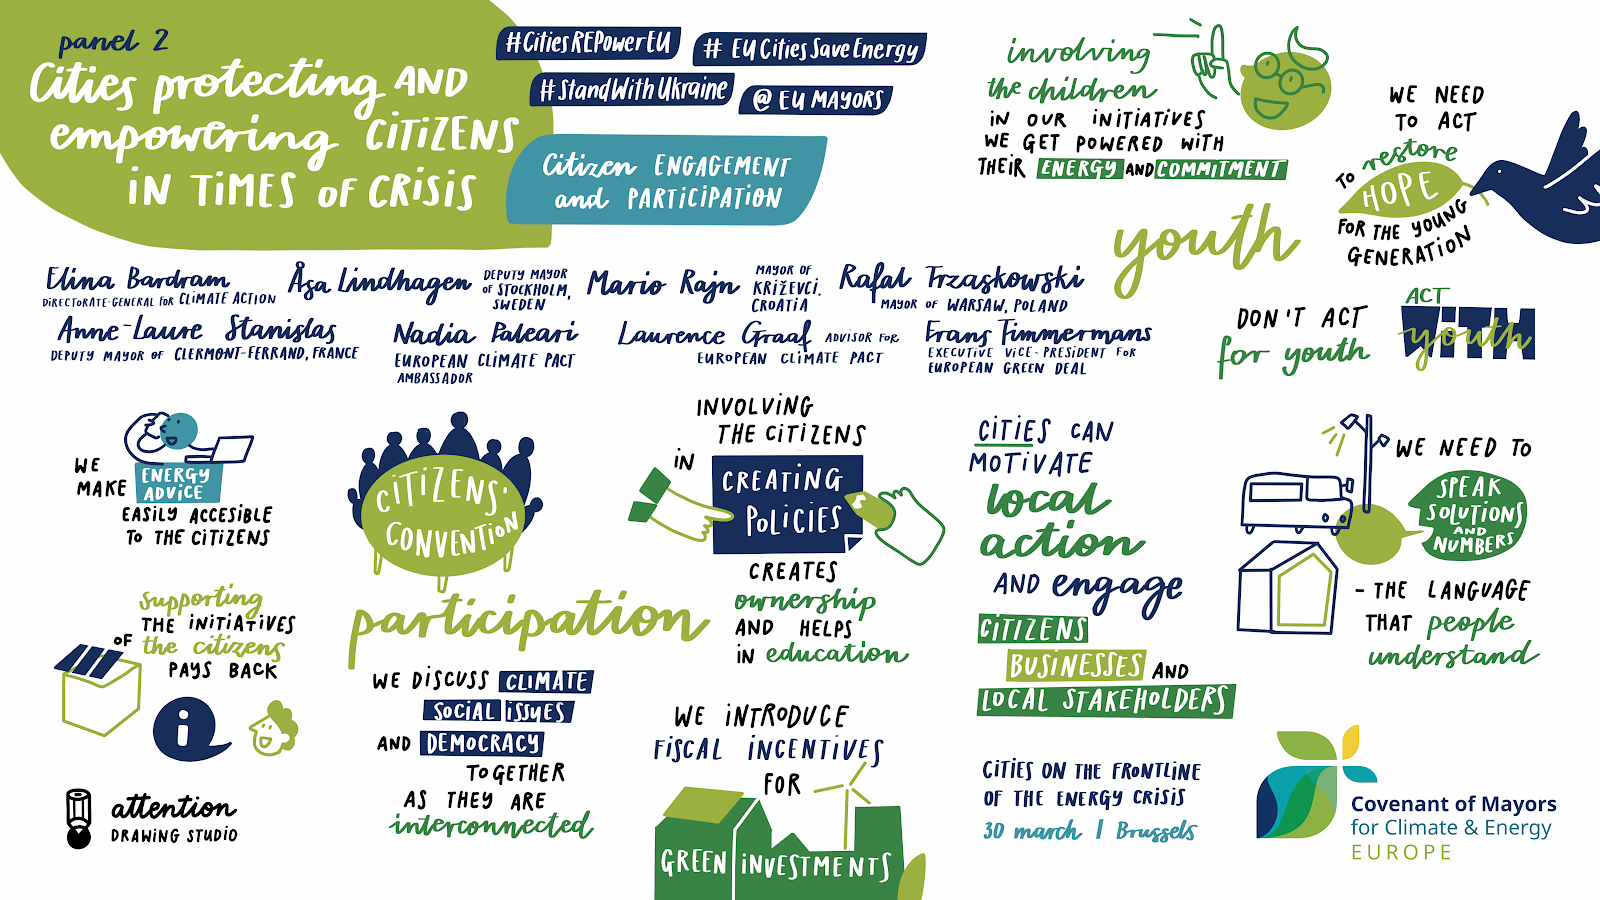 panel 2
Cities protecting AND
empowering CITIZENS
IN TIMES OF CRISIS
#CitiesREPowerEU
# EU Cities Save Energy
#StandWithUkraine
@ EU MAYORS
Citizen ENGAGEMENT
and PARTICIPATION
involving
the children
IN OUR INITIATIVES
WE GET POWERED WITH
THEIR ENERGY AND COMMITMENT
WE NEED
TO ACT
TO restore
HOPE
FOR THE YOUNG
GENERATION
youth
DON'T ACT
for youth
ACT
WITH
youth
Elina Bardram
DIRECTORATE-GENERAL for CLIMATE ACTION
Åsa Lindhagen
DEPUTY MAYOR
OF STOCKHOLM,
SWEDEN
Mario Rajn
MAYOR OF
KRIŽEVCI,
CROATIA
Rafał Trzaskowski
MAYOR OF WARSAW, POLAND
Anne-Laure Stanislas
DEPUTY MAYOR OF CLERMONT-FERRAND, FRANCE
Nadia Paleari
EUROPEAN CLIMATE PACT
AMBASSADOR
Laurence Graaf ADVISOR FOR
EUROPEAN CLIMATE PACT
Frans Timmermans
EXECUTIVE VICE-PRESIDENT FOR
EUROPEAN GREEN DEAL
WE
MAKE ENERGY
ADVICE
EASILY ACCESIBLE
TO THE CITIZENS
supporting
THE INITIATIVES
OF the citizens
PAYS BACK
i
attention
DRAWING STUDIO
CITIZENS'
CONVENTION
participation
WE DISCUSS CLIMATE
SOCIAL ISSUES
AND DEMOCRACY
TOGETHER
AS THEY ARE
interconnected
INVOLVING
THE CITIZENS
IN
CREATING
POLICIES
CREATES
ownership
AND HELPS
IN education
WE INTRODUCE
FISCAL INCENTIVES
FOR
GREEN INVESTMENTS
CITIES CAN
MOTIVATE
local
action
AND engage
CITIZENS
BUSINESSES AND
LOCAL STAKEHOLDERS
CITIES ON THE FRONTLINE
OF THE ENERGY CRISIS
30 march | Brussels
WE NEED TO
SPEAK
SOLUTIONS
AND
NUMBERS
- THE LANGUAGE
THAT people
understand
Covenant of Mayors
for Climate & Energy
EUROPE